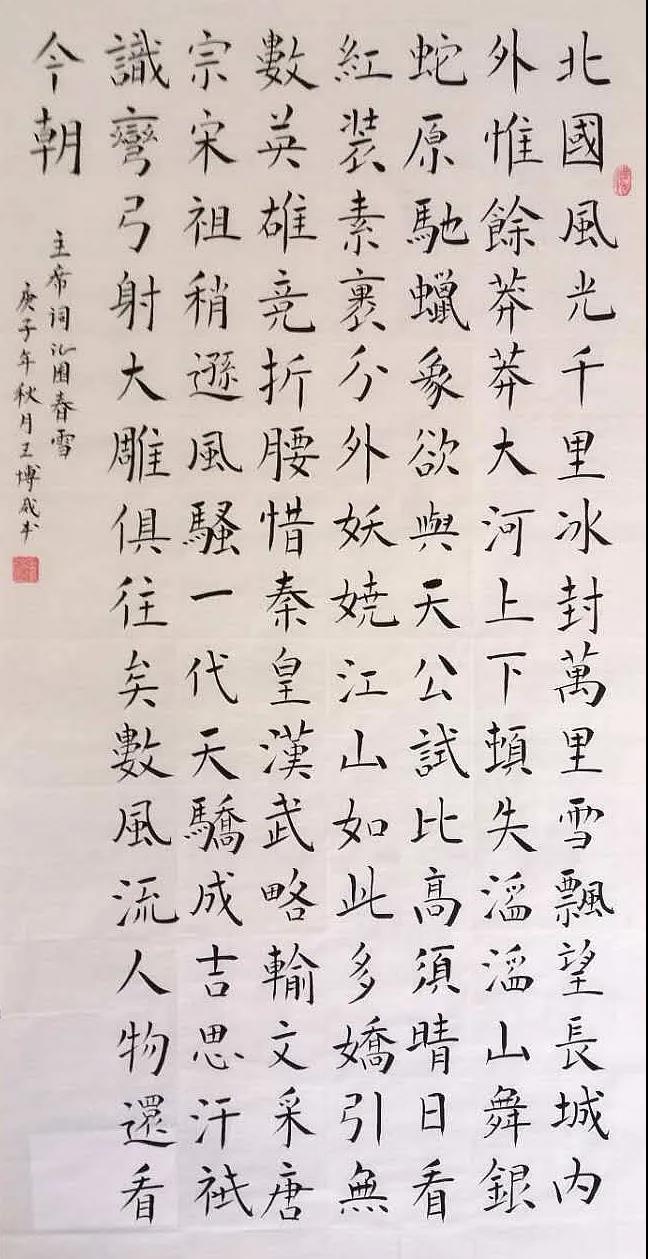 北國風光千里冰封萬里雪飄望長城内
外惟餘莽莽大河上下頓失滔滔山舞銀
蛇原馳蠟象欲與天公試比高須晴日看
紅裝素裹分外妖娆江山如此多嬌引無
數英雄竞折腰惜秦皇漢武略輸文采唐
宗宋祖稍遜風騷一代天驕成吉思汗祗
識彎弓射大雕俱往矣數風流人物還看
今朝
主席词沁园春雪
庚子年秋月王博成书